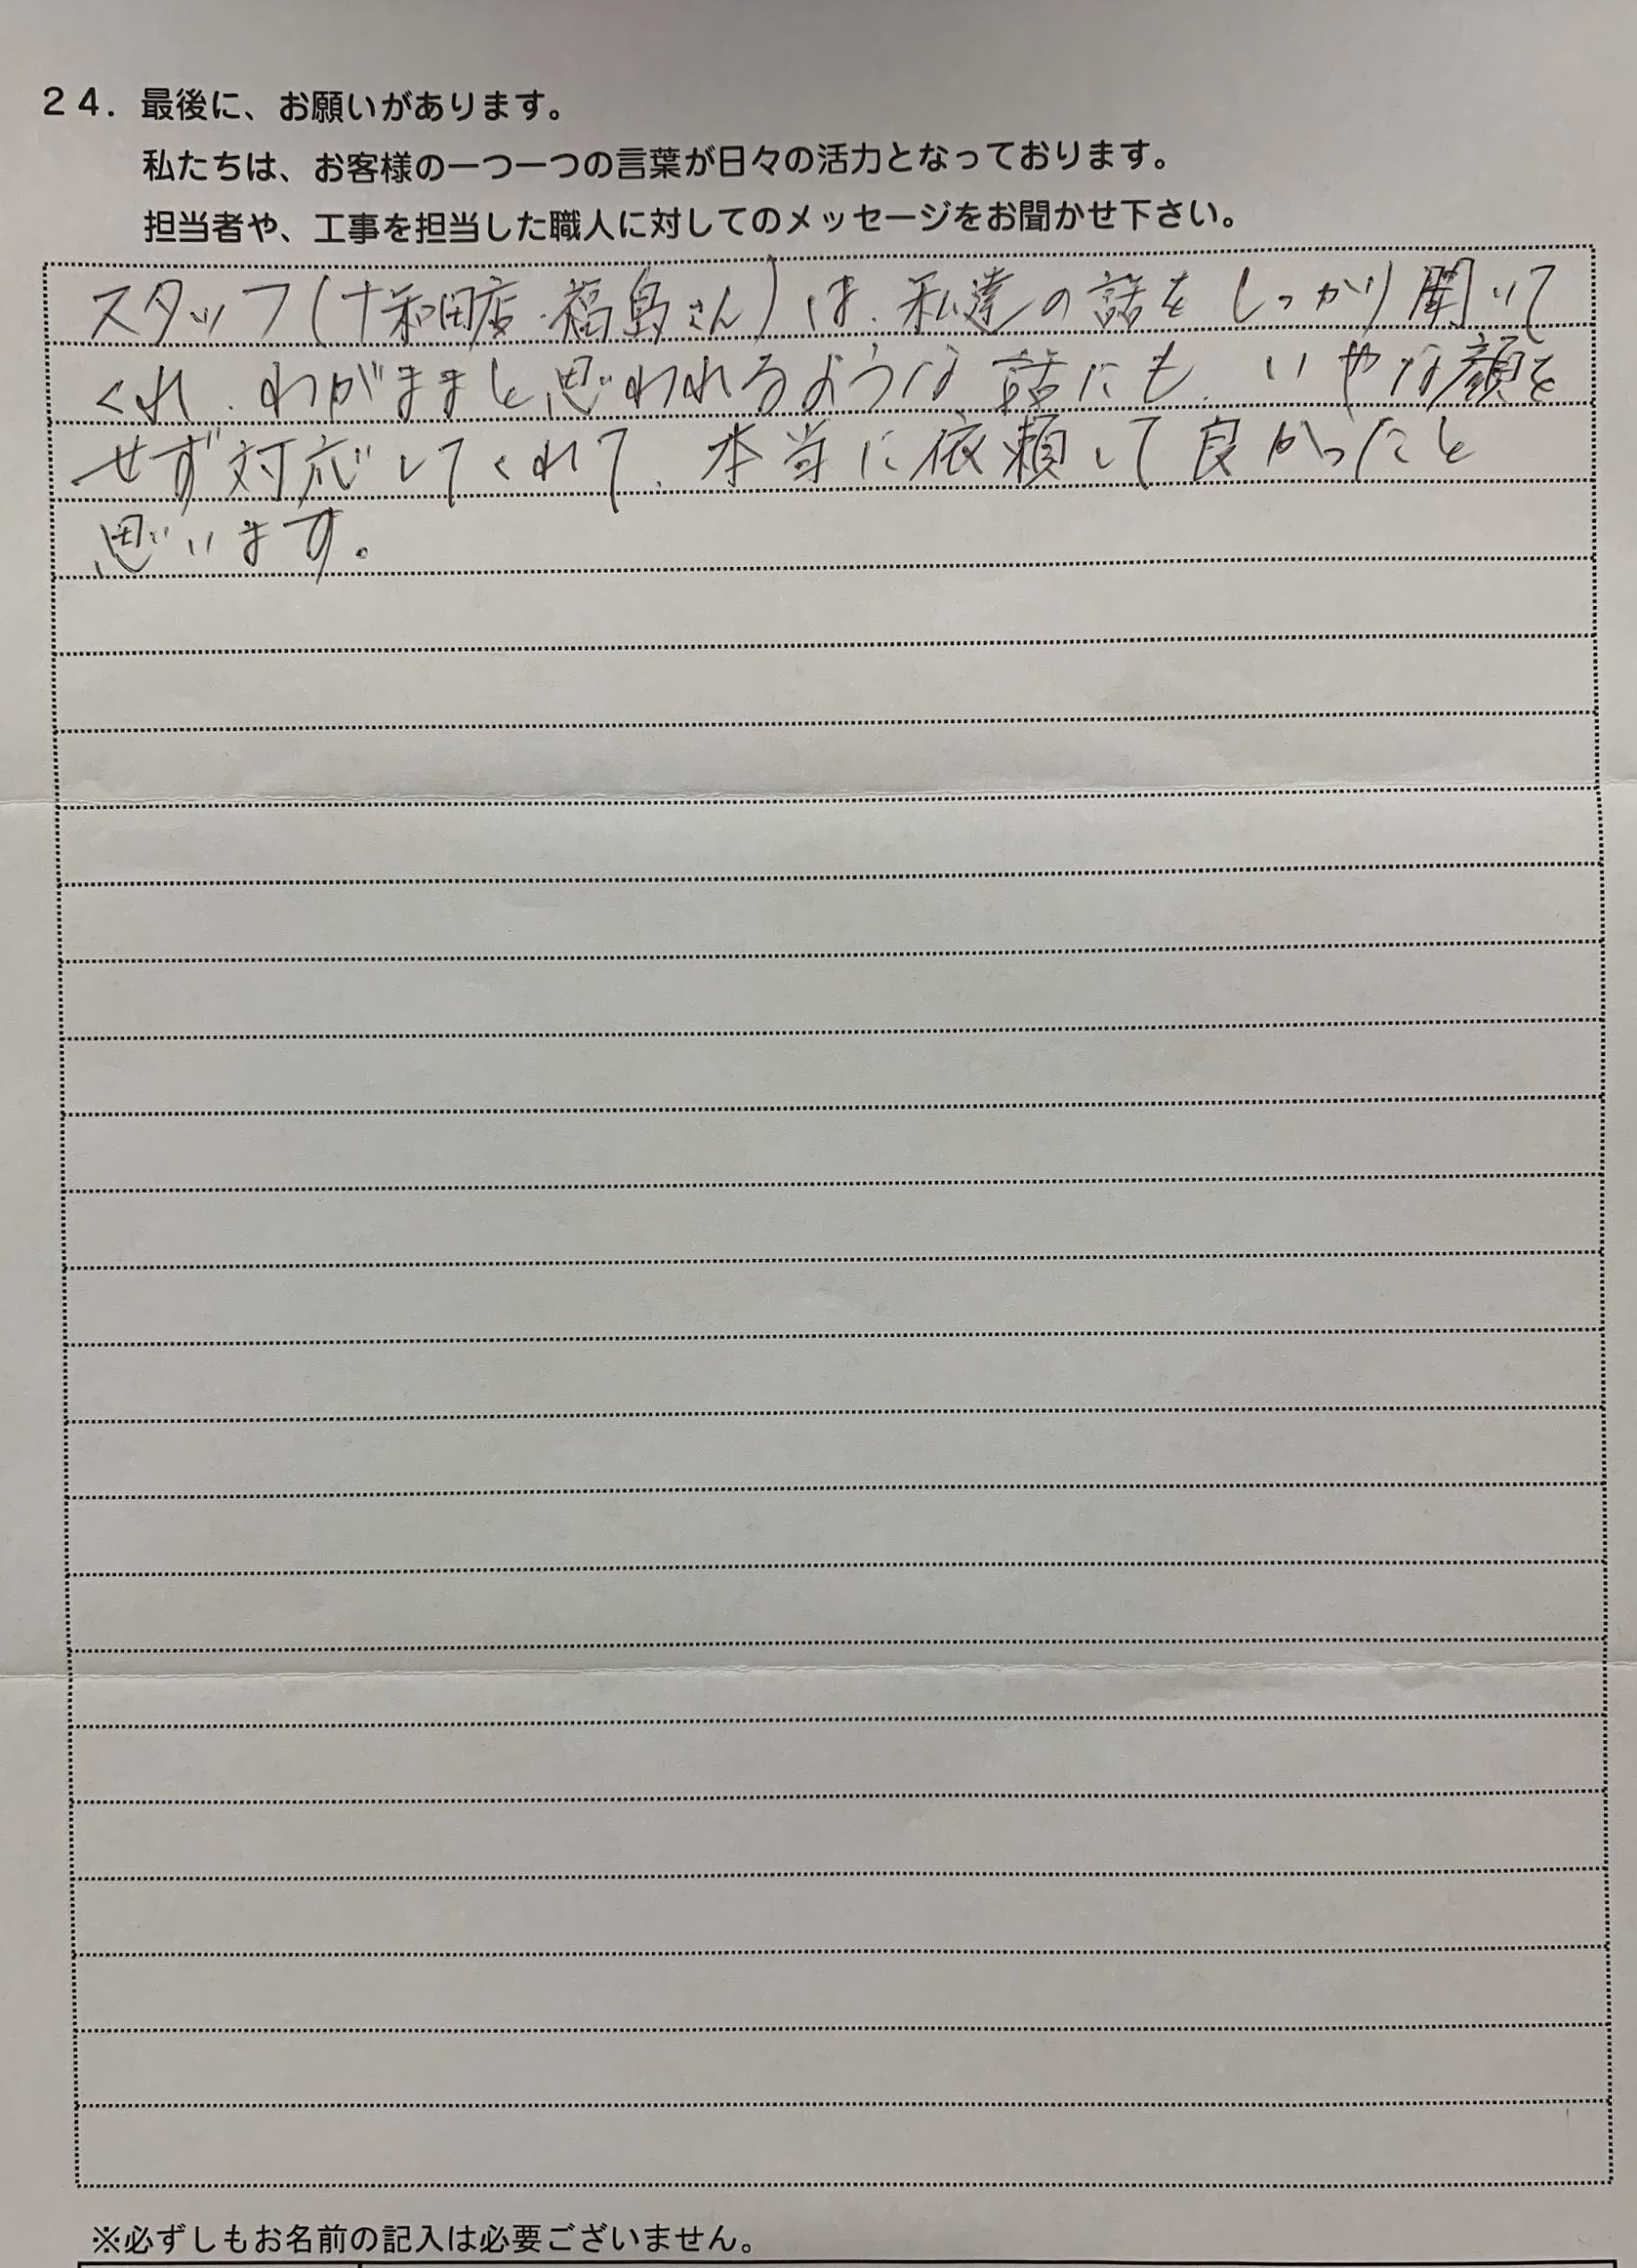 24. 最後に、お願いがあります。
私たちは、お客様の一つ一つの言葉が日々の活力となっております。
担当者や、工事を担当した職人に対してのメッセージをお聞かせ下さい。
スタッフ(十和田店・福島さん)は、私達の話をしっかり聞いて
くれ、わがままと思われるような話にも、いやな顔を
せず対応してくれて、本当に依頼して良かったと
思います。
※必ずしもお名前の記入は必要ございません。